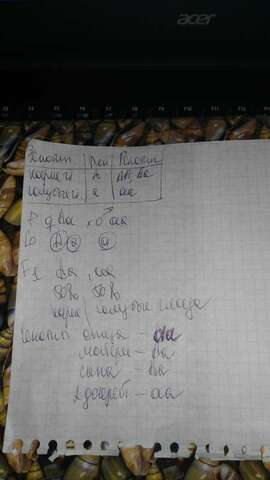 acer
Фенотип Ген Генотип
карие гл А АА, Аа
голубые гл а аа
P: ♀ Аа × ♂ аа
G: А а а
F1 Аа, аа
50% 50%
карие голубые глаза
Генотип отца – аа
матери – Аа
сына – Аа
2 дочерей – аа